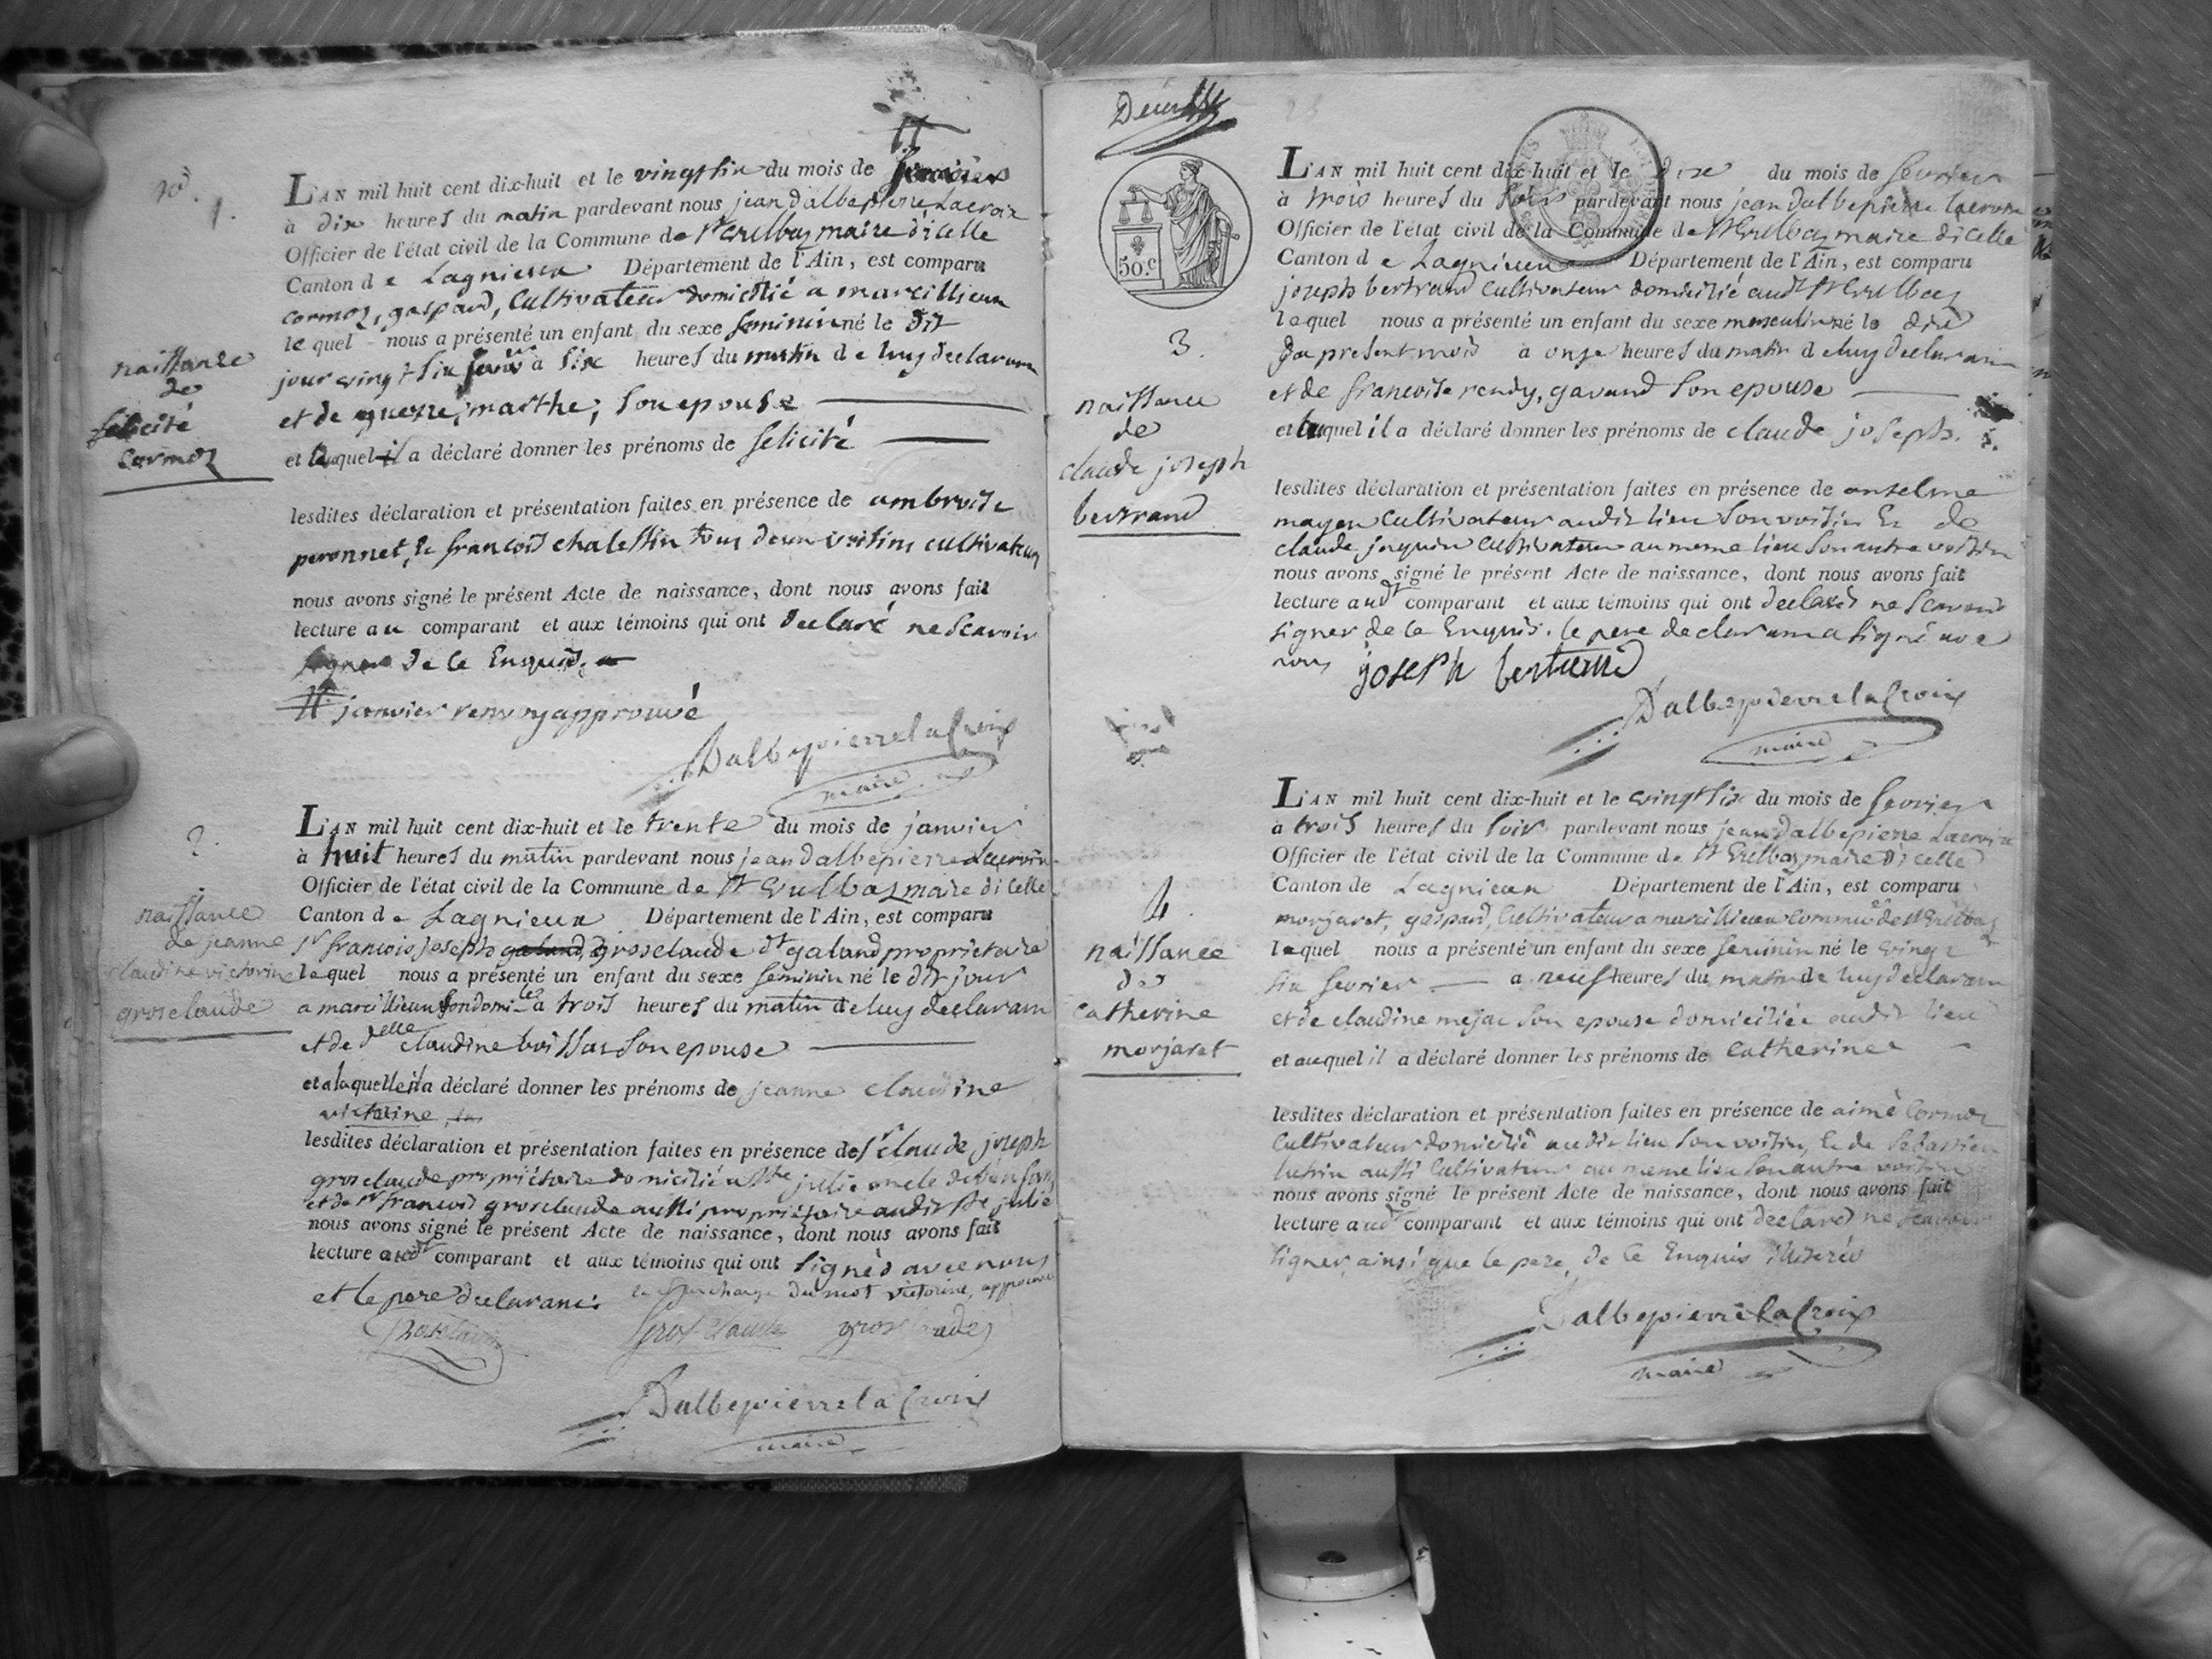 nº. 1.
naissance
de
felicité
Cormoz
L'AN mil huit cent dix-huit et le vingt six du mois de
à dix heures du matin pardevant nous jean dalbepierre Lacroix
Officier de l'état civil de la Commune de St Vulbaz maire dicelle
Canton de Lagnieux Département de l'Ain, est comparu
cormoz, gaspard, Cultivateur domicilié a marcillieux
lequel nous a présenté un enfant du sexe feminin né le dit
jour vingt six janvr à six heures du matin de luy declarant
et de guerre, marthe, son epouse
et quel il a déclaré donner les prénoms de felicité
lesdites déclaration et présentation faites en présence de ambroise
peronnet, & françois tous deux voisins cultivateurs
nous avons signé le présent Acte de naissance, dont nous avons fait
lecture au comparant et aux témoins qui ont declaré ne scavoir
signer de ce Enquis.
janvier renvoy approuvé
Dalbepierre la Croix
maire
2.
naissance
de jeanne
claudine victorine
grosclaude
L'AN mil huit cent dix-huit et le trente du mois de janvier
à huit heures du matin pardevant nous jean dalbepierre Lacroix
Officier de l'état civil de la Commune de St Vulbaz maire dicelle
Canton de Lagnieux Département de l'Ain, est comparu
sr francois joseph galand, grosclaude dt galand proprietaire
lequel nous a présenté un enfant du sexe feminin né le dit jour
a marcillieux son domile à trois heures du matin de luy declarant
et de delle claudine son epouse
et a laquelle il a déclaré donner les prénoms de jeanne claudine
victorine
lesdites déclaration et présentation faites en présence de sr claude joseph
grosclaude propriétaire domicilié a Ste julie oncle de
et de sr francois grosclaude aussi propriétaire audit Ste julie
nous avons signé le présent Acte de naissance, dont nous avons fait
lecture audt comparant et aux témoins qui ont signés avec nous
et le pere declarant. la surcharge du mot victorine, approuvé
Grosclaude Grosclaude grosclaude
Dalbepierre la Croix
maire
50.c
3.
naissance
de
claude joseph
bertrand
L'AN mil huit cent dix-huit et le dix du mois de fevrier
à trois heures du soir pardevant nous jean dalbepierre lacroix
Officier de l'état civil de la Commune de St Vulbaz maire dicelle
Canton de Lagnieux Département de l'Ain, est comparu
joseph bertrand cultivateur domicilié audt St Vulbaz
lequel nous a présenté un enfant du sexe masculin né le dix
du present mois à onze heures du matin de luy declarant
et de francoise son epouse
et quel il a déclaré donner les prénoms de claude joseph.
lesdites déclaration et présentation faites en présence de anselme
mayen cultivateur audit lieu son voisin & de
claude cultivateur au meme lieu son autre voisin
nous avons signé le présent Acte de naissance, dont nous avons fait
lecture audt comparant et aux témoins qui ont declarés ne scavoir
signer de ce Enquis. le pere declarant a signé avec
nous joseph bertrand
Dalbepierre la Croix
maire
4.
naissance
de
catherine
morjaret
L'AN mil huit cent dix-huit et le vingt six du mois de fevrier
à trois heures du soir pardevant nous jean dalbepierre Lacroix
Officier de l'état civil de la Commune de St Vulbaz maire dicelle
Canton de Lagnieux Département de l'Ain, est comparu
morjaret, gaspard, Cultivateur a marcillieux commune de St Vulbaz
lequel nous a présenté un enfant du sexe feminin né le vingt
six fevrier à neuf heures du matin de luy declarant
et de claudine mejac son epouse domiciliée audit lieu
et auquel il a déclaré donner les prénoms de Catherine
lesdites déclaration et présentation faites en présence de aimé Cormoz
Cultivateur domicilié audit lieu son voisin, & de Sebastien
aussi Cultivateur au meme lieu son autre voisin
nous avons signé le présent Acte de naissance, dont nous avons fait
lecture audt comparant et aux témoins qui ont declarés ne scavoir
signer, ainsi que le pere, de ce Enquis
Dalbepierre la Croix
maire